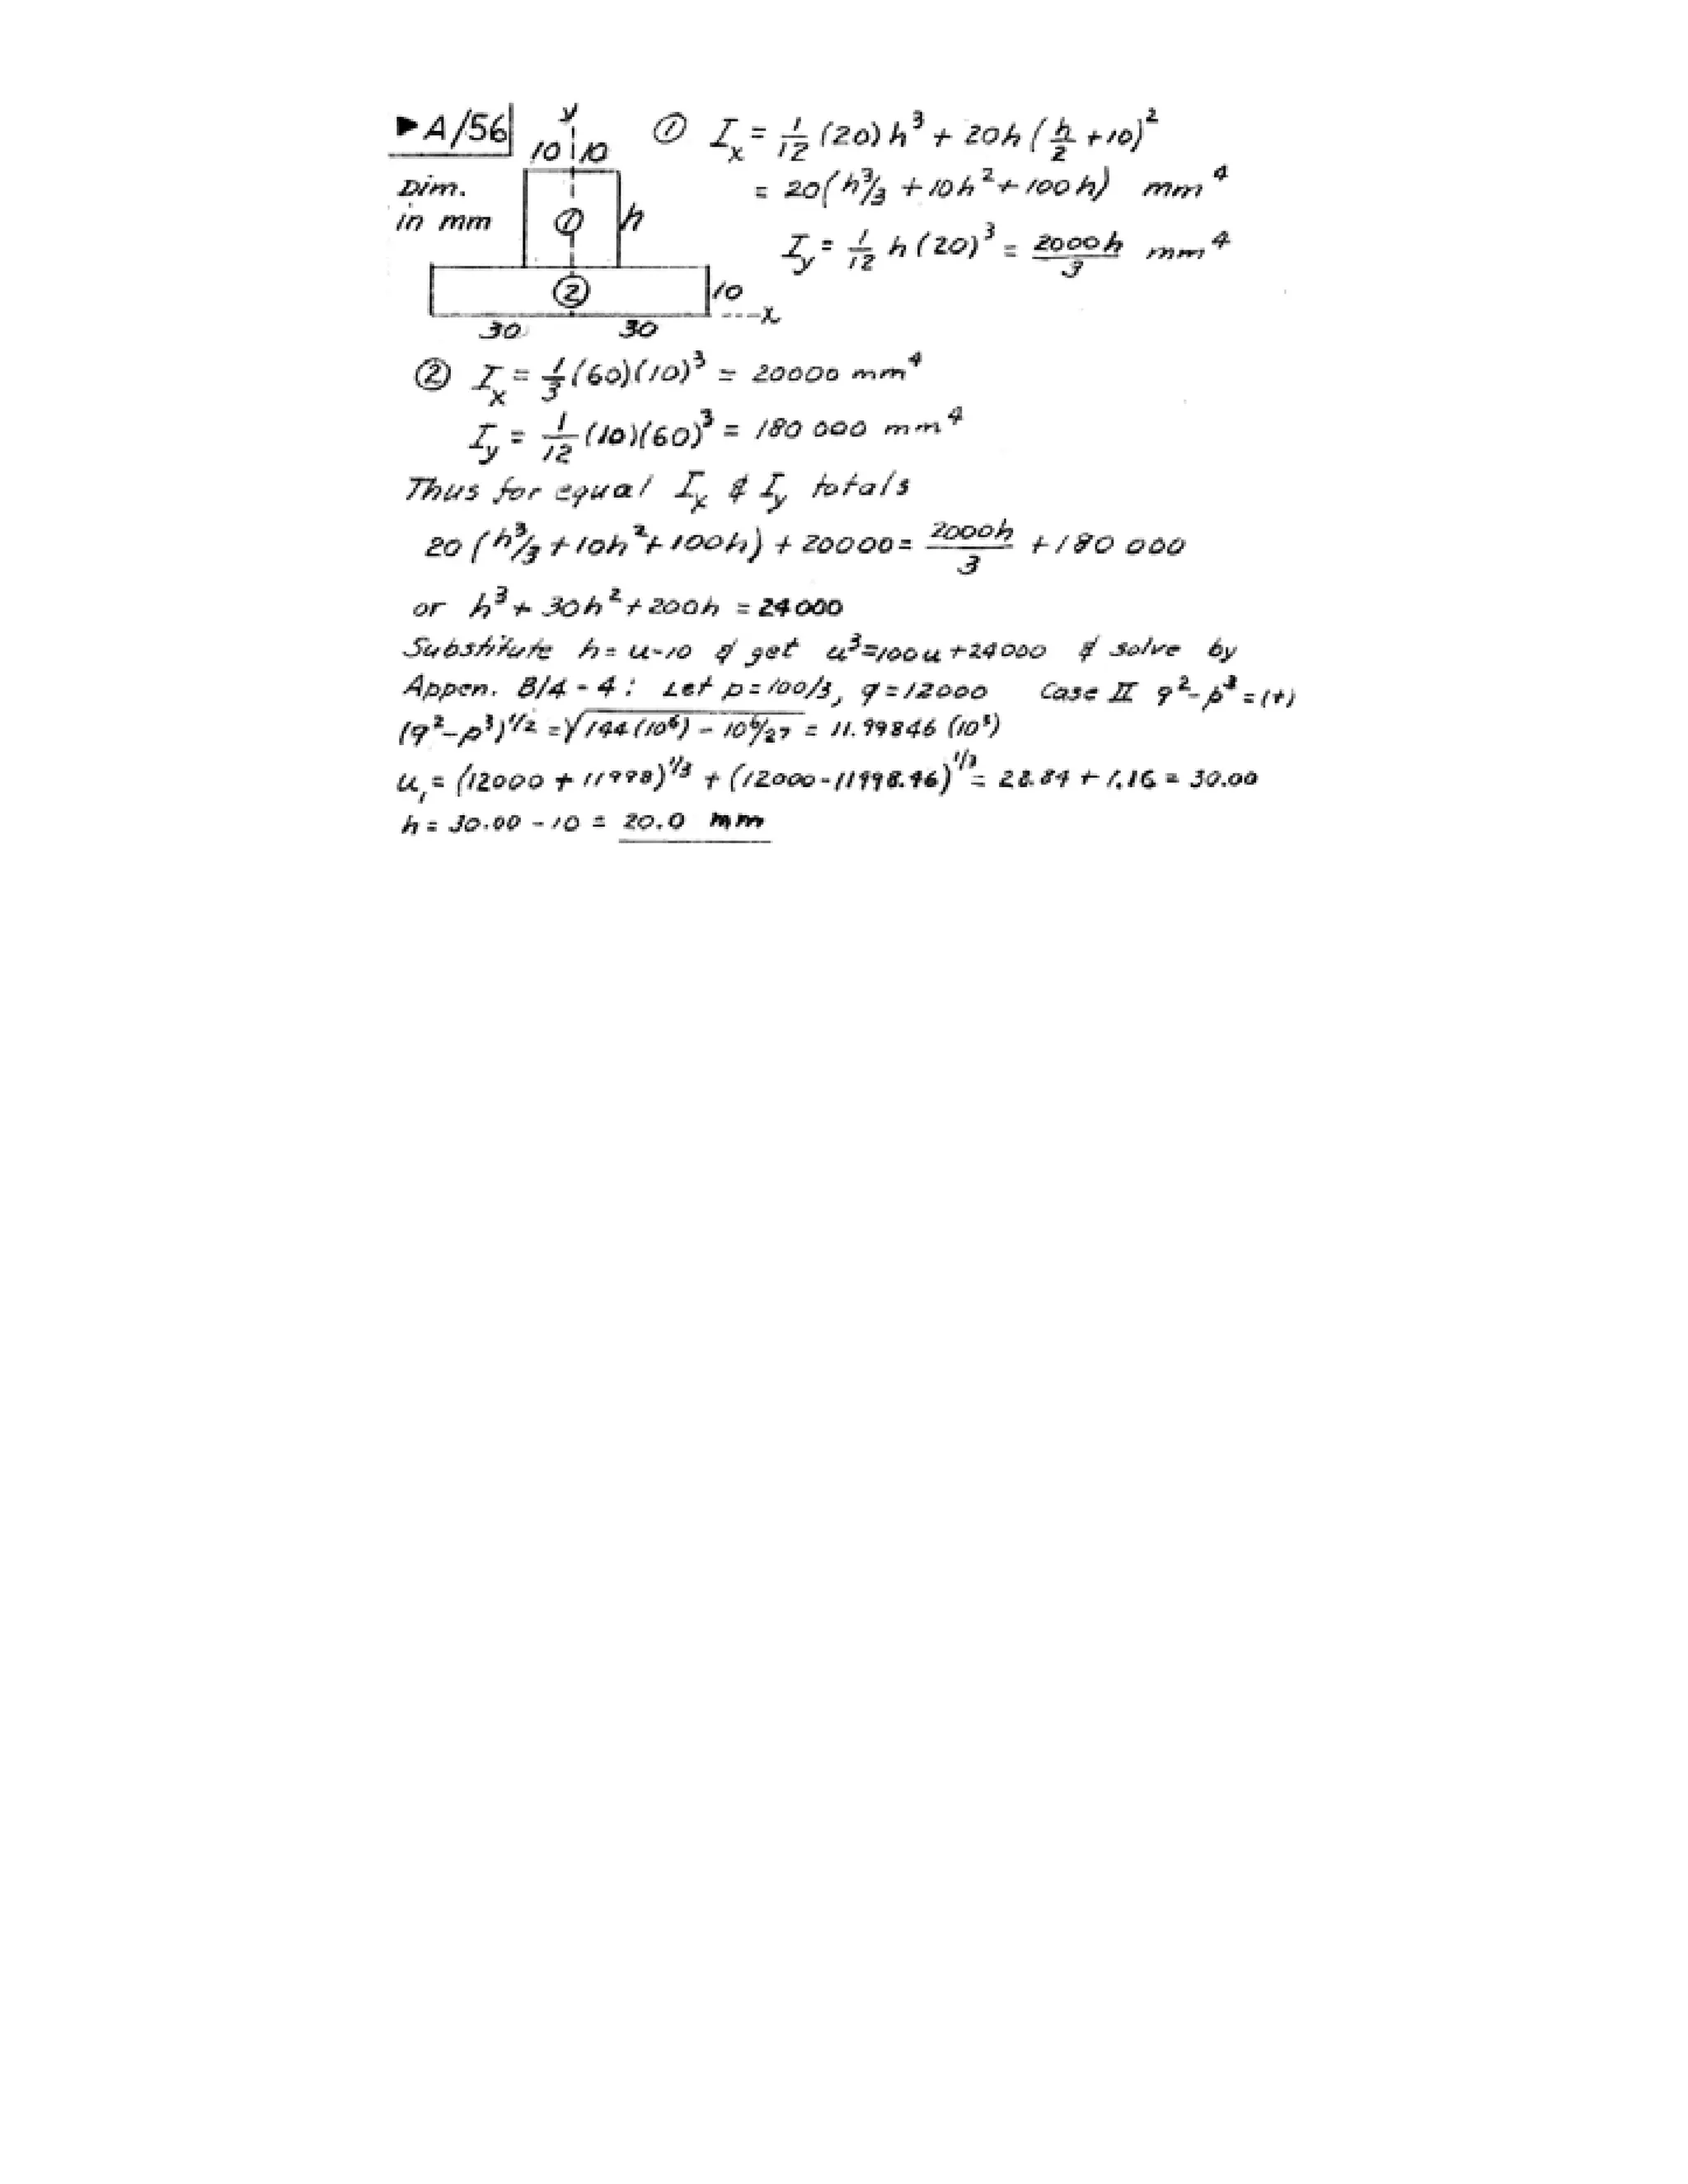 ►A/56
Dim.
in mm
y
10 10
① h
② 10
30 30 x
① Iₓ = 1/12 (20) h³ + 20h (h/2 + 10)²
= 20(h³/3 + 10h² + 100h) mm⁴
I_y = 1/12 h (20)³ = 2000h/3 mm⁴
② Iₓ = 1/3 (60)(10)³ = 20000 mm⁴
I_y = 1/12 (10)(60)³ = 180 000 mm⁴
Thus for equal Iₓ & I_y totals
20 (h³/3 + 10h² + 100h) + 20000 = 2000h/3 + 180 000
or h³ + 30h² + 200h = 24000
Substitute h = u-10 & get u³=100u + 24000 & solve by
Appen. B/4 - 4 : Let p = 100/3, q = 12000 Case II q² - p³ = (+)
(q² - p³)^1/2 = √144(10⁶) - 10⁶/27 = 11.99846 (10³)
u₁ = (12000 + 11998)^1/3 + (12000 - 11998.46)^1/3 = 28.84 + 1.16 = 30.00
h = 30.00 - 10 = 20.0 mm